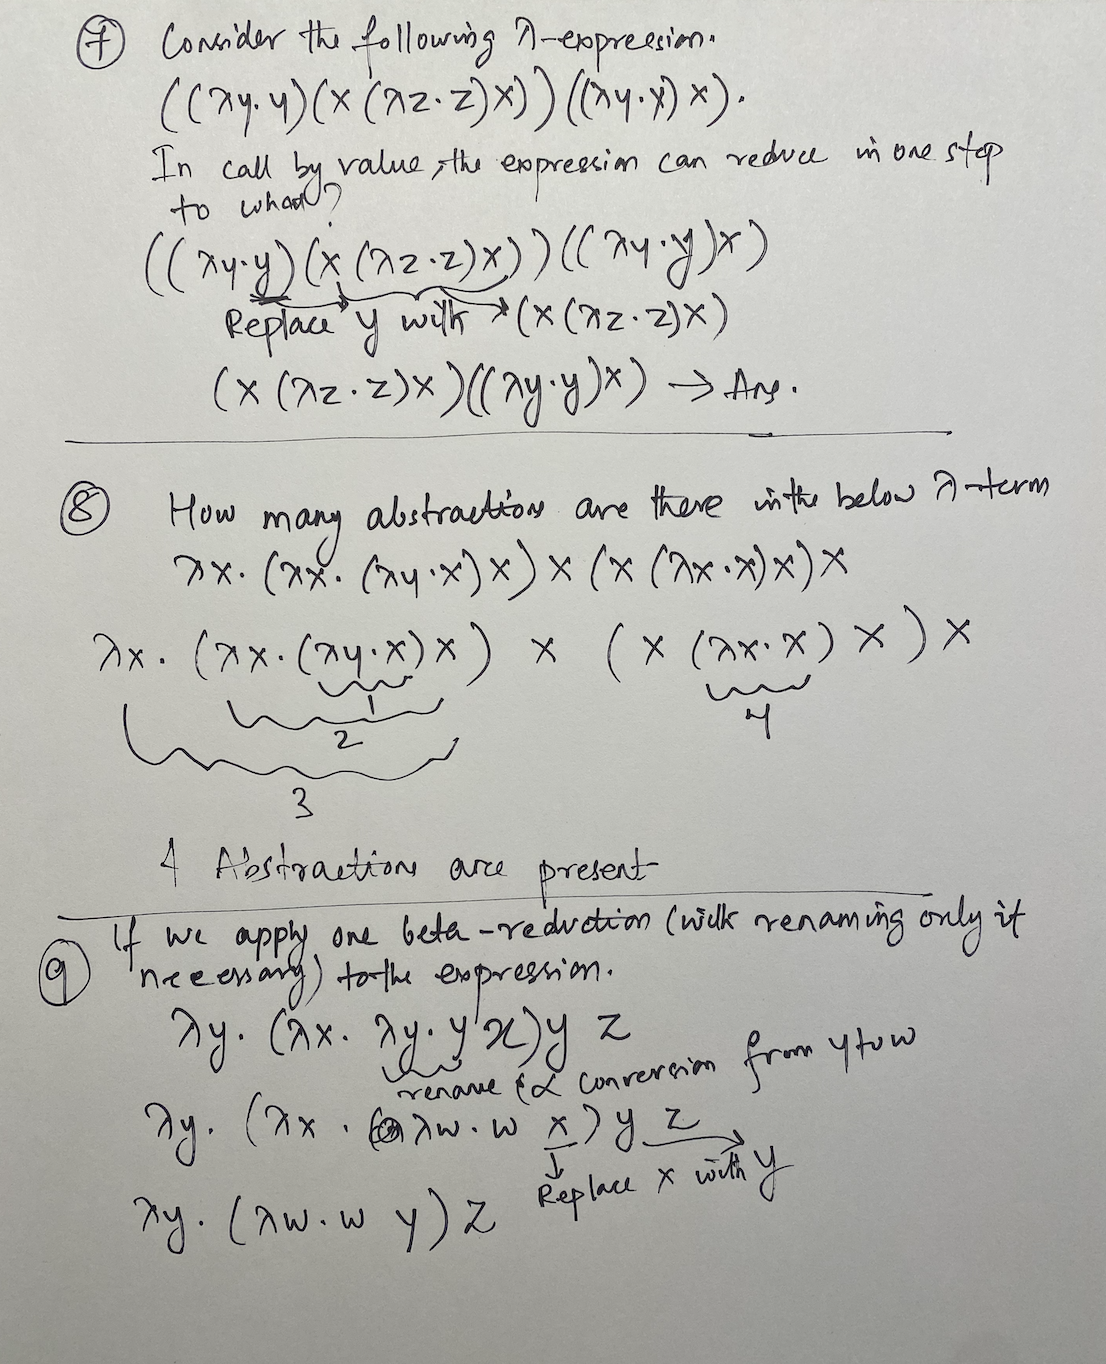 7 Consider the following λ-expression.
((λy.y)(x(λz.z)x))((λy.y)x).
In call by value, the expression can reduce in one step
to what?
((λy.y)(x(λz.z)x))((λy.y)x)
Replace y with → (x(λz.z)x)
(x(λz.z)x)((λy.y)x) → Ans.
8 How many abstractions are there in the below λ-term
λx.(λx.(λy.x)x)x(x(λx.x)x)x
λx.(λx.(λy.x)x) x (x(λx.x)x)x
1
2
4
3
4 Abstractions are present
9 If we apply one beta-reduction (with renaming only if
necessary) to the expression.
λy.(λx.λy.y x)y z
rename (α conversion from y to w
λy.(λx.λw.w x)y z
Replace x with y
λy.(λw.w y)z